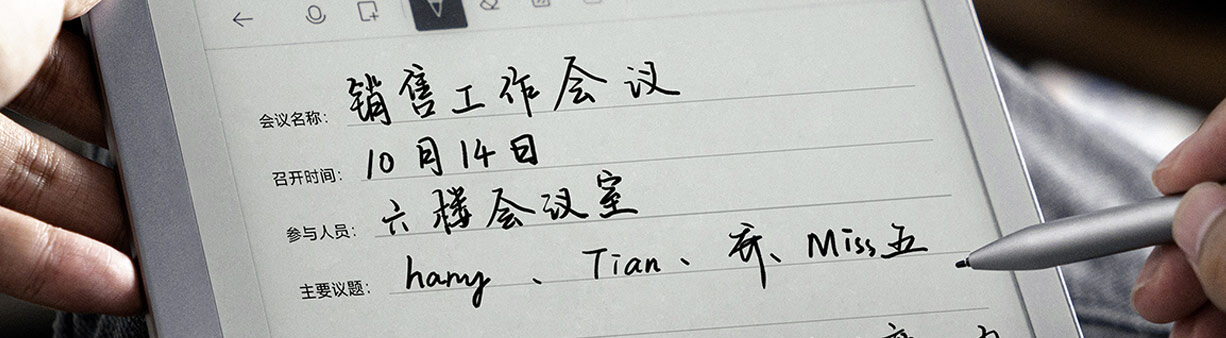 会议名称: 销售工作会议
召开时间: 10月14日
参与人员: 六楼会议室
主要议题: 、Tian、齐、Miss五